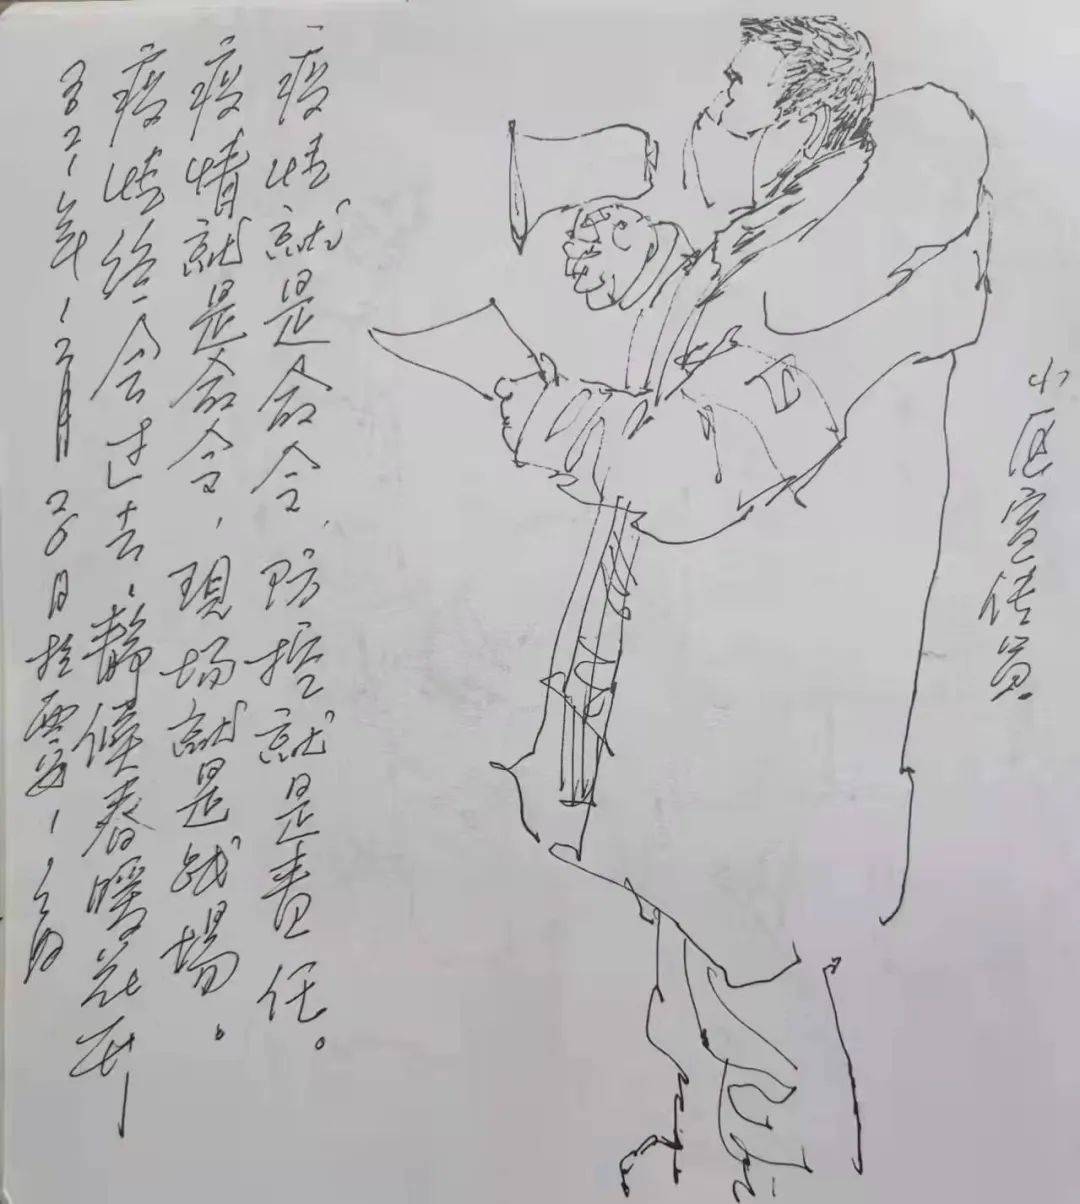 小区宣传员
疫情就是命令,防控就是责任。
疫情就是命令,現场就是战場。
疫情终会过去,静候春暖花开—
2021年12月26日於西安